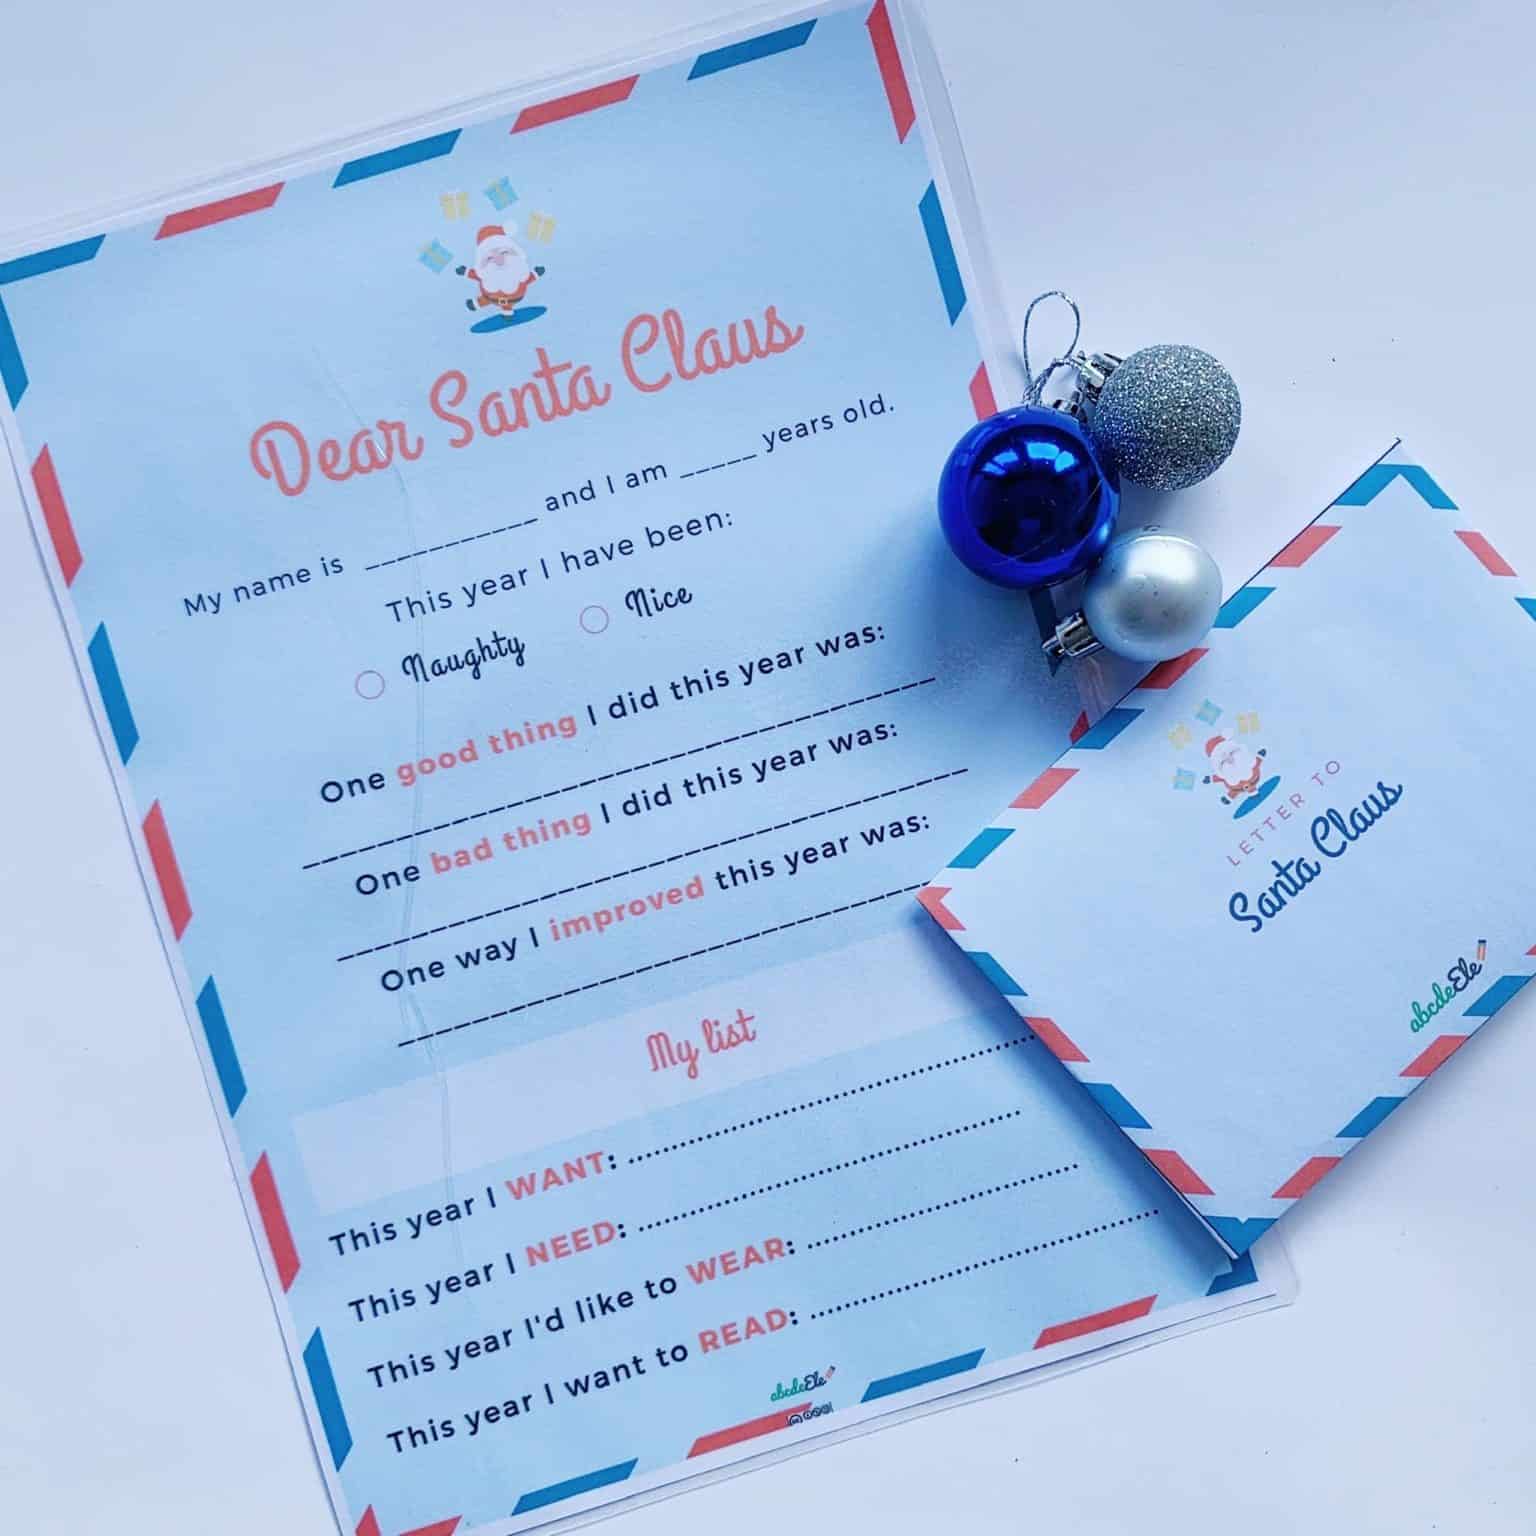 Dear Santa Claus
My name is __________ and I am _____ years old.
This year I have been:
Naughty Nice
One good thing I did this year was:
One bad thing I did this year was:
One way I improved this year was:
My list
This year I WANT: ........................................
This year I NEED: ........................................
This year I'd like to WEAR: .............................
This year I want to READ: .....................................
abcdeEle
LETTER TO
Santa Claus
abcdeEle